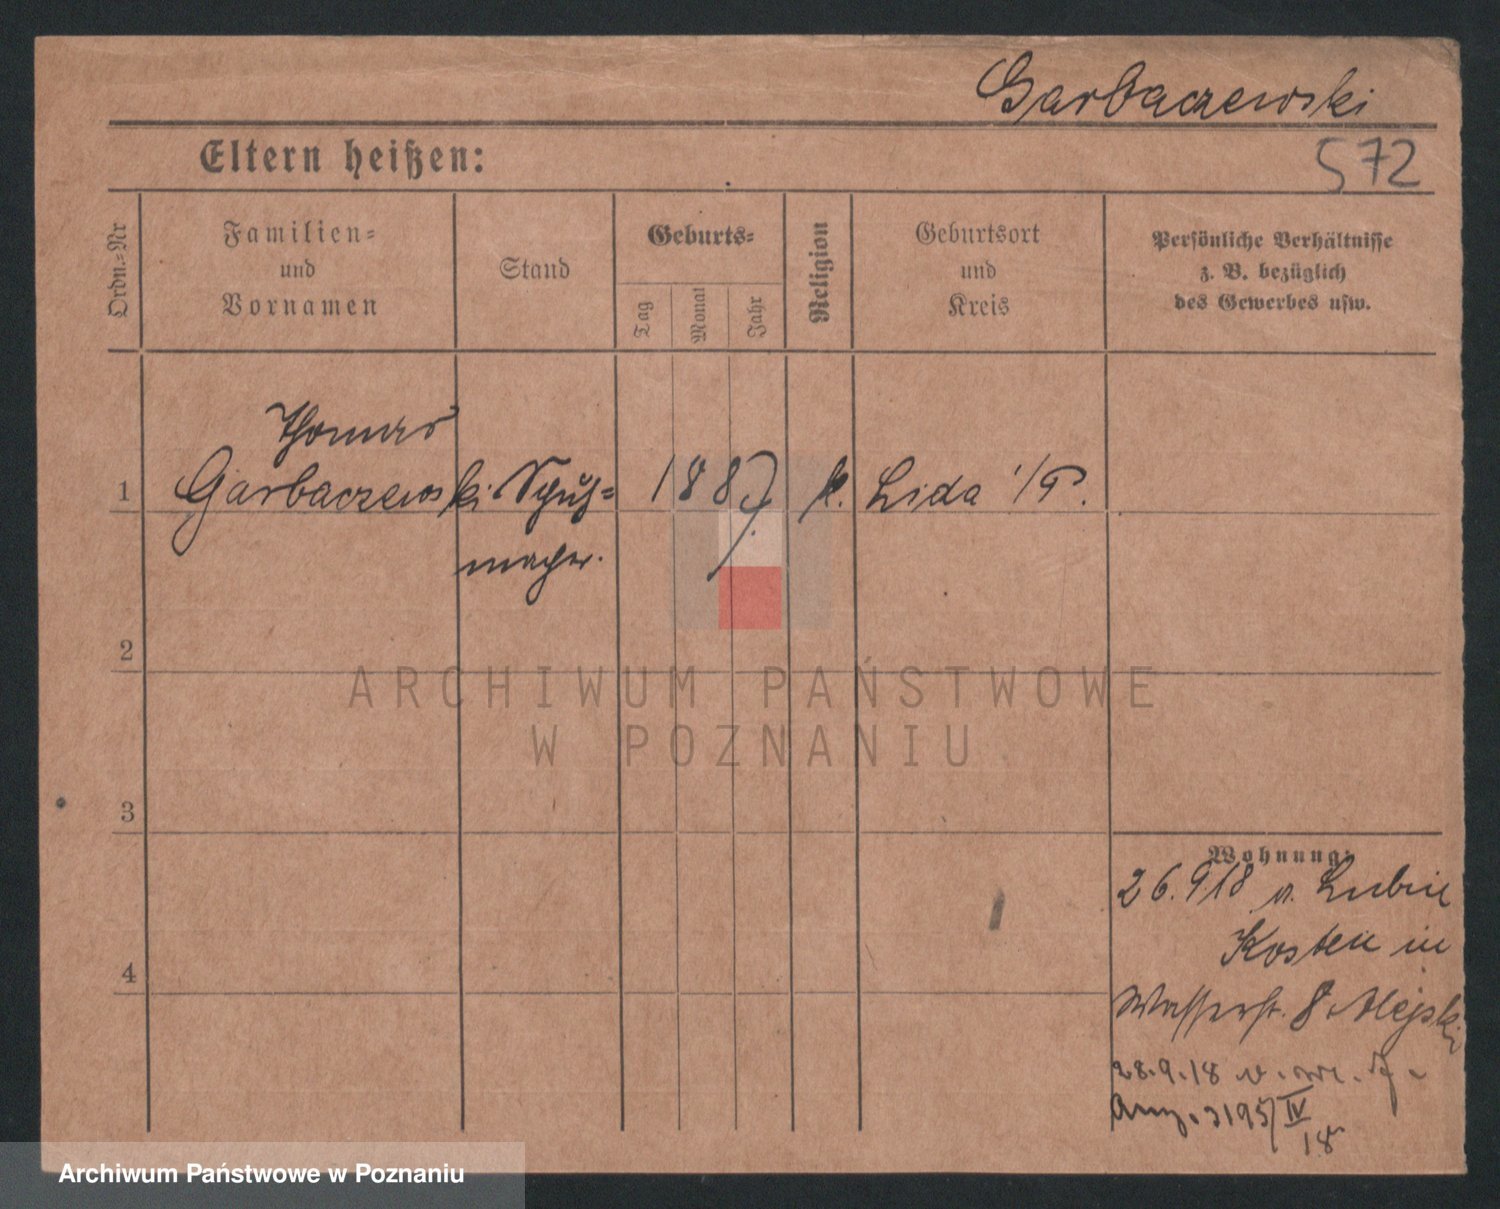 Garbaczewski
Eltern heißen:
572
Ordn.-Nr
Familien-
und
Vornamen
Stand
Geburts-
Tag
Monat
Jahr
Religion
Geburtsort
und
Kreis
Persönliche Verhältnisse
z. B. bezüglich
des Gewerbes usw.
Thomas
1 Garbaczewski Schuh- 1887 k. Lida
macher.
2
ARCHIWUM PAŃSTWOWE
W POZNANIU
3
Wohnung:
26.9.18 a. Lubin
Kosten in
4
Wasserstr. 8
28.9.18 v.
18
Archiwum Państwowe w Poznaniu